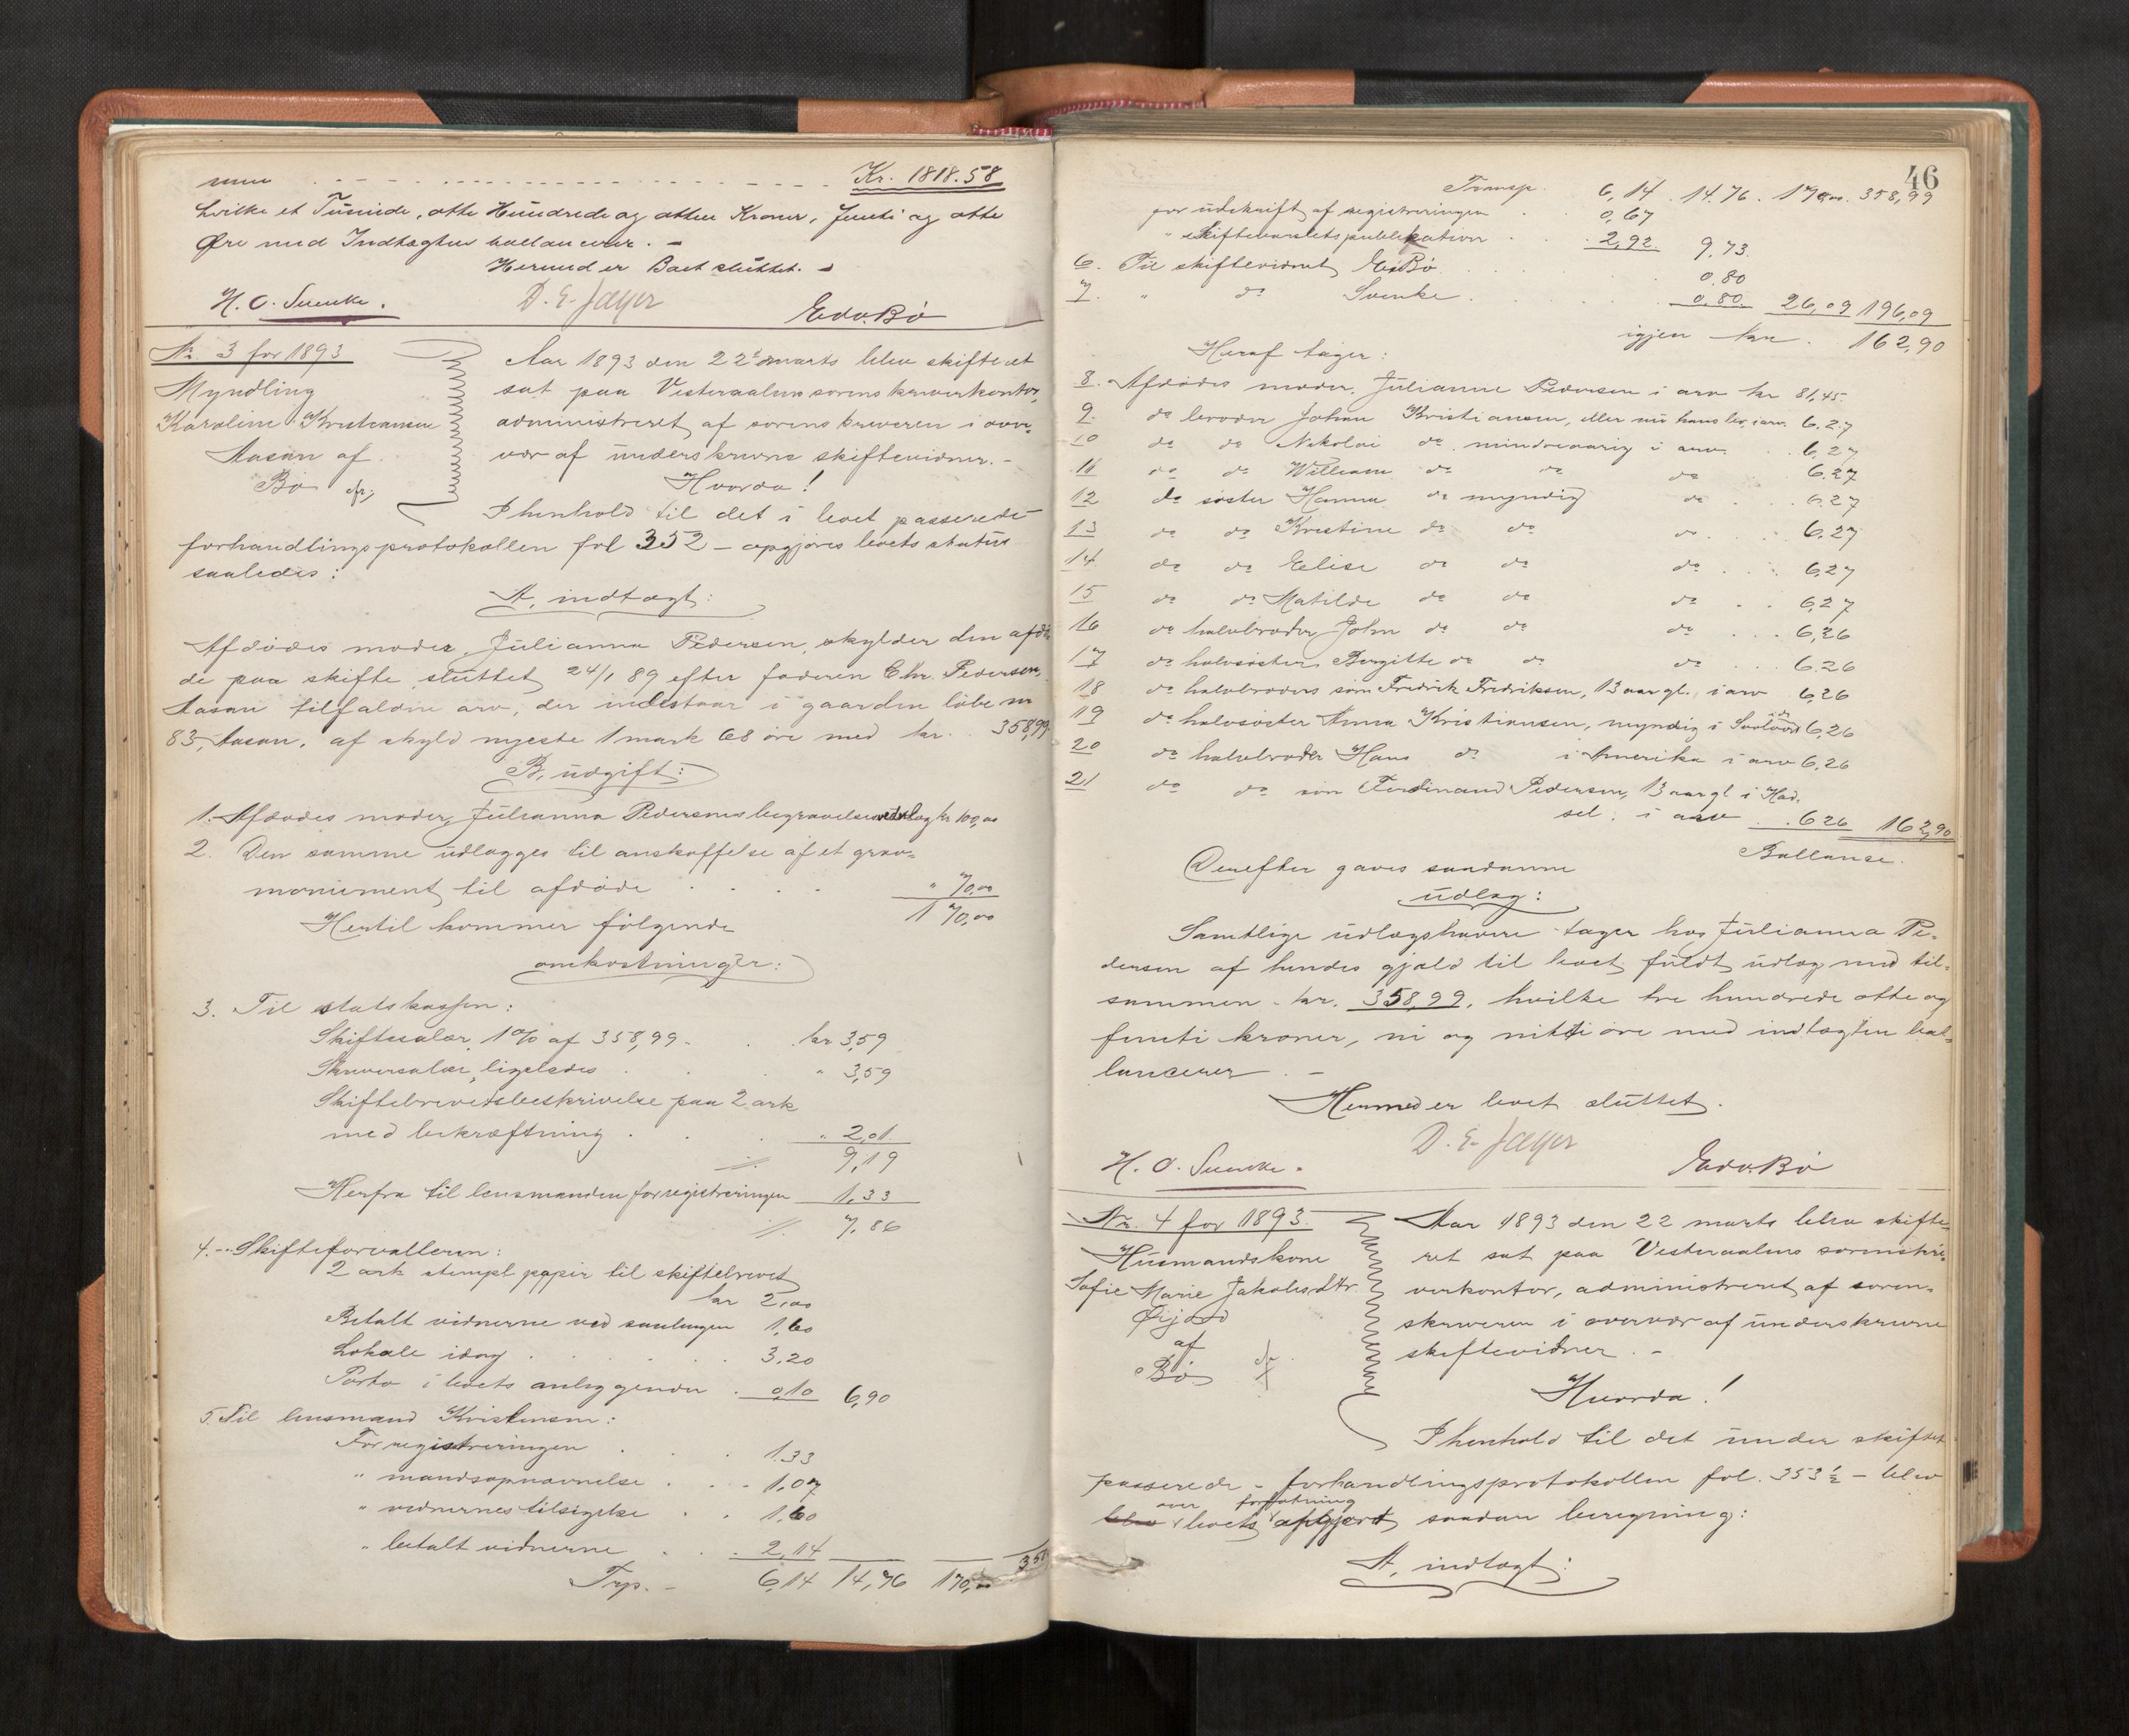 Kr. 1818.58
hvilke et Tusinde, otte Hundrede og atten Kroner, femti og otte
Øre med Indtægten ballancerer. –
Hermed er Boet sluttet. –
H. O. Suencke. D. E. Jæger Edv. Bö
Nr. 3 for 1893
Myndling
Karoline Kristiansen
Aasan af
Bö
Aar 1893 den 22de marts blev skifteret
sat paa Vesteraalens sorenskriverkontor,
administreret af sorenskriveren i over-
vær af underskrevne skiftevidner. –
Hvorda!
I henhold til det i boet passerede –
forhandlingsprotokollen fol 352 – opgjøres boets status
saaledes:
A, indtægt:
Afdödes moder, Julianna Pedersen, skylder den afdö-
de paa skifte, sluttet 24/1 89 efter faderen Chr. Pedersen,
Aasan tilfaldne arv, der indestaar i gaarden löbe nr
83, Aasan, af skyld nyeste 1 mark 68 öre med kr. 358,99
B, udgift:
1. Afdödes moder, Julianna Pedersens begravelsesudlæg kr 100,00
2. Den samme udlægges til anskaffelse af et grav-
monument til afdöde . . . . " 70,00
170,00
Hertil kommer fölgende
omkostninger:
3. Til statskassen:
Skiftesalær, 1% af 358,99 . . kr 3,59
Skriversalær, ligeledes . . " 3,59
Skiftebrevetsbeskrivelse paa 2 ark
med bekræftning . . . " 2,01
9,19
Herfra til lensmanden for registreringen 1,33
7,86
4. Skifteforvalteren:
2 ark stempl. papir til skiftebrevet
kr 2,00
Betalt vidnerne ved samlingen 1,60
Lokale idag . . . . . . 3,20
Porto i boets anliggender . 0,10 6,90
5. Til lensmand Kristensen:
For registreringen . . . 1.33
" mandsopnævnelse . . . 1,07
" vidnernes tilsigelse . . 1,60
" betalt vidnerne . . . 2,14
Trp. – 6,14 14,76 170,00 358
46
Transp. 6,14 . 14.76 . 170,00. 358,99
for udskrift af registreringen . 0,67
" Skiftevarslets publikation . . . 2,92. 9,73
6. Til skiftevidnet Edv. Bö . . . 0,80
7. " do Svenke . . . 0,80. 26,09 196,09
igjen kr. 162,90
Heraf tager:
8. Afdödes moder, Julianne Pedersen i arv kr 81,45
9. do broder Johan Kristiansen, eller nu hans bo, i arv. 6.27
10 do do Nikolai do mindreaarig i arv. . . 6,27
11 do do William do do do 6.27
12 do söster Hanna do myndig do . . 6.27
13 do do Kristine do do do . . 6,27
14 do do Elise do do do . . 6,27
15 do do Matilde do do do . . 6,27
16 do halvbroder John do do do . . . 6,26
17 do halvsöster Bergitte do do do . . . 6.26
18 do halvbroders sön Fredrik Fredriksen, 13 aar gl., i arv 6,26
19 do halvsöster Anna Kristiansen, myndig i 6,26
20 do halvbroder Hans do i Amerika i arv 6.26
21 do do sön Ferdinand Pedersen, 13 aar gl i Had-
sel, i arv . . 626 162,90
Ballance.
Derefter gaves saadanne
udlæg:
Samtlige udlægshavere tager hos Julianna Pe-
dersen af hendes gjæld til boet, fuldt udlæg med til-
sammen – kr. 358,99, hvilke tre hundrede otte og
femti kroner, ni og nitti öre med indtægten bal-
lancerer . –
Hermed er boet sluttet.
H. O. Suencke. D. E. Jæger Edv. Bö
Nr. 4 for 1893.
Husmandskone
Sofie Marie Jakobsdtr.
Örjord
af
Bö
Aar 1893 den 22 marts blev skifte-
ret sat paa Vesteraalens sorenskri-
verkontor, administreret af soren-
skriveren i overvær af underskrevne
skiftevidner. –
Hvorda!
I henhold til det under skiftet
passerede – forhandlingsprotokollen fol. 353 ½ – blev
over forfatning
blev boets opgjort saadan beregning:
A, indtægt: